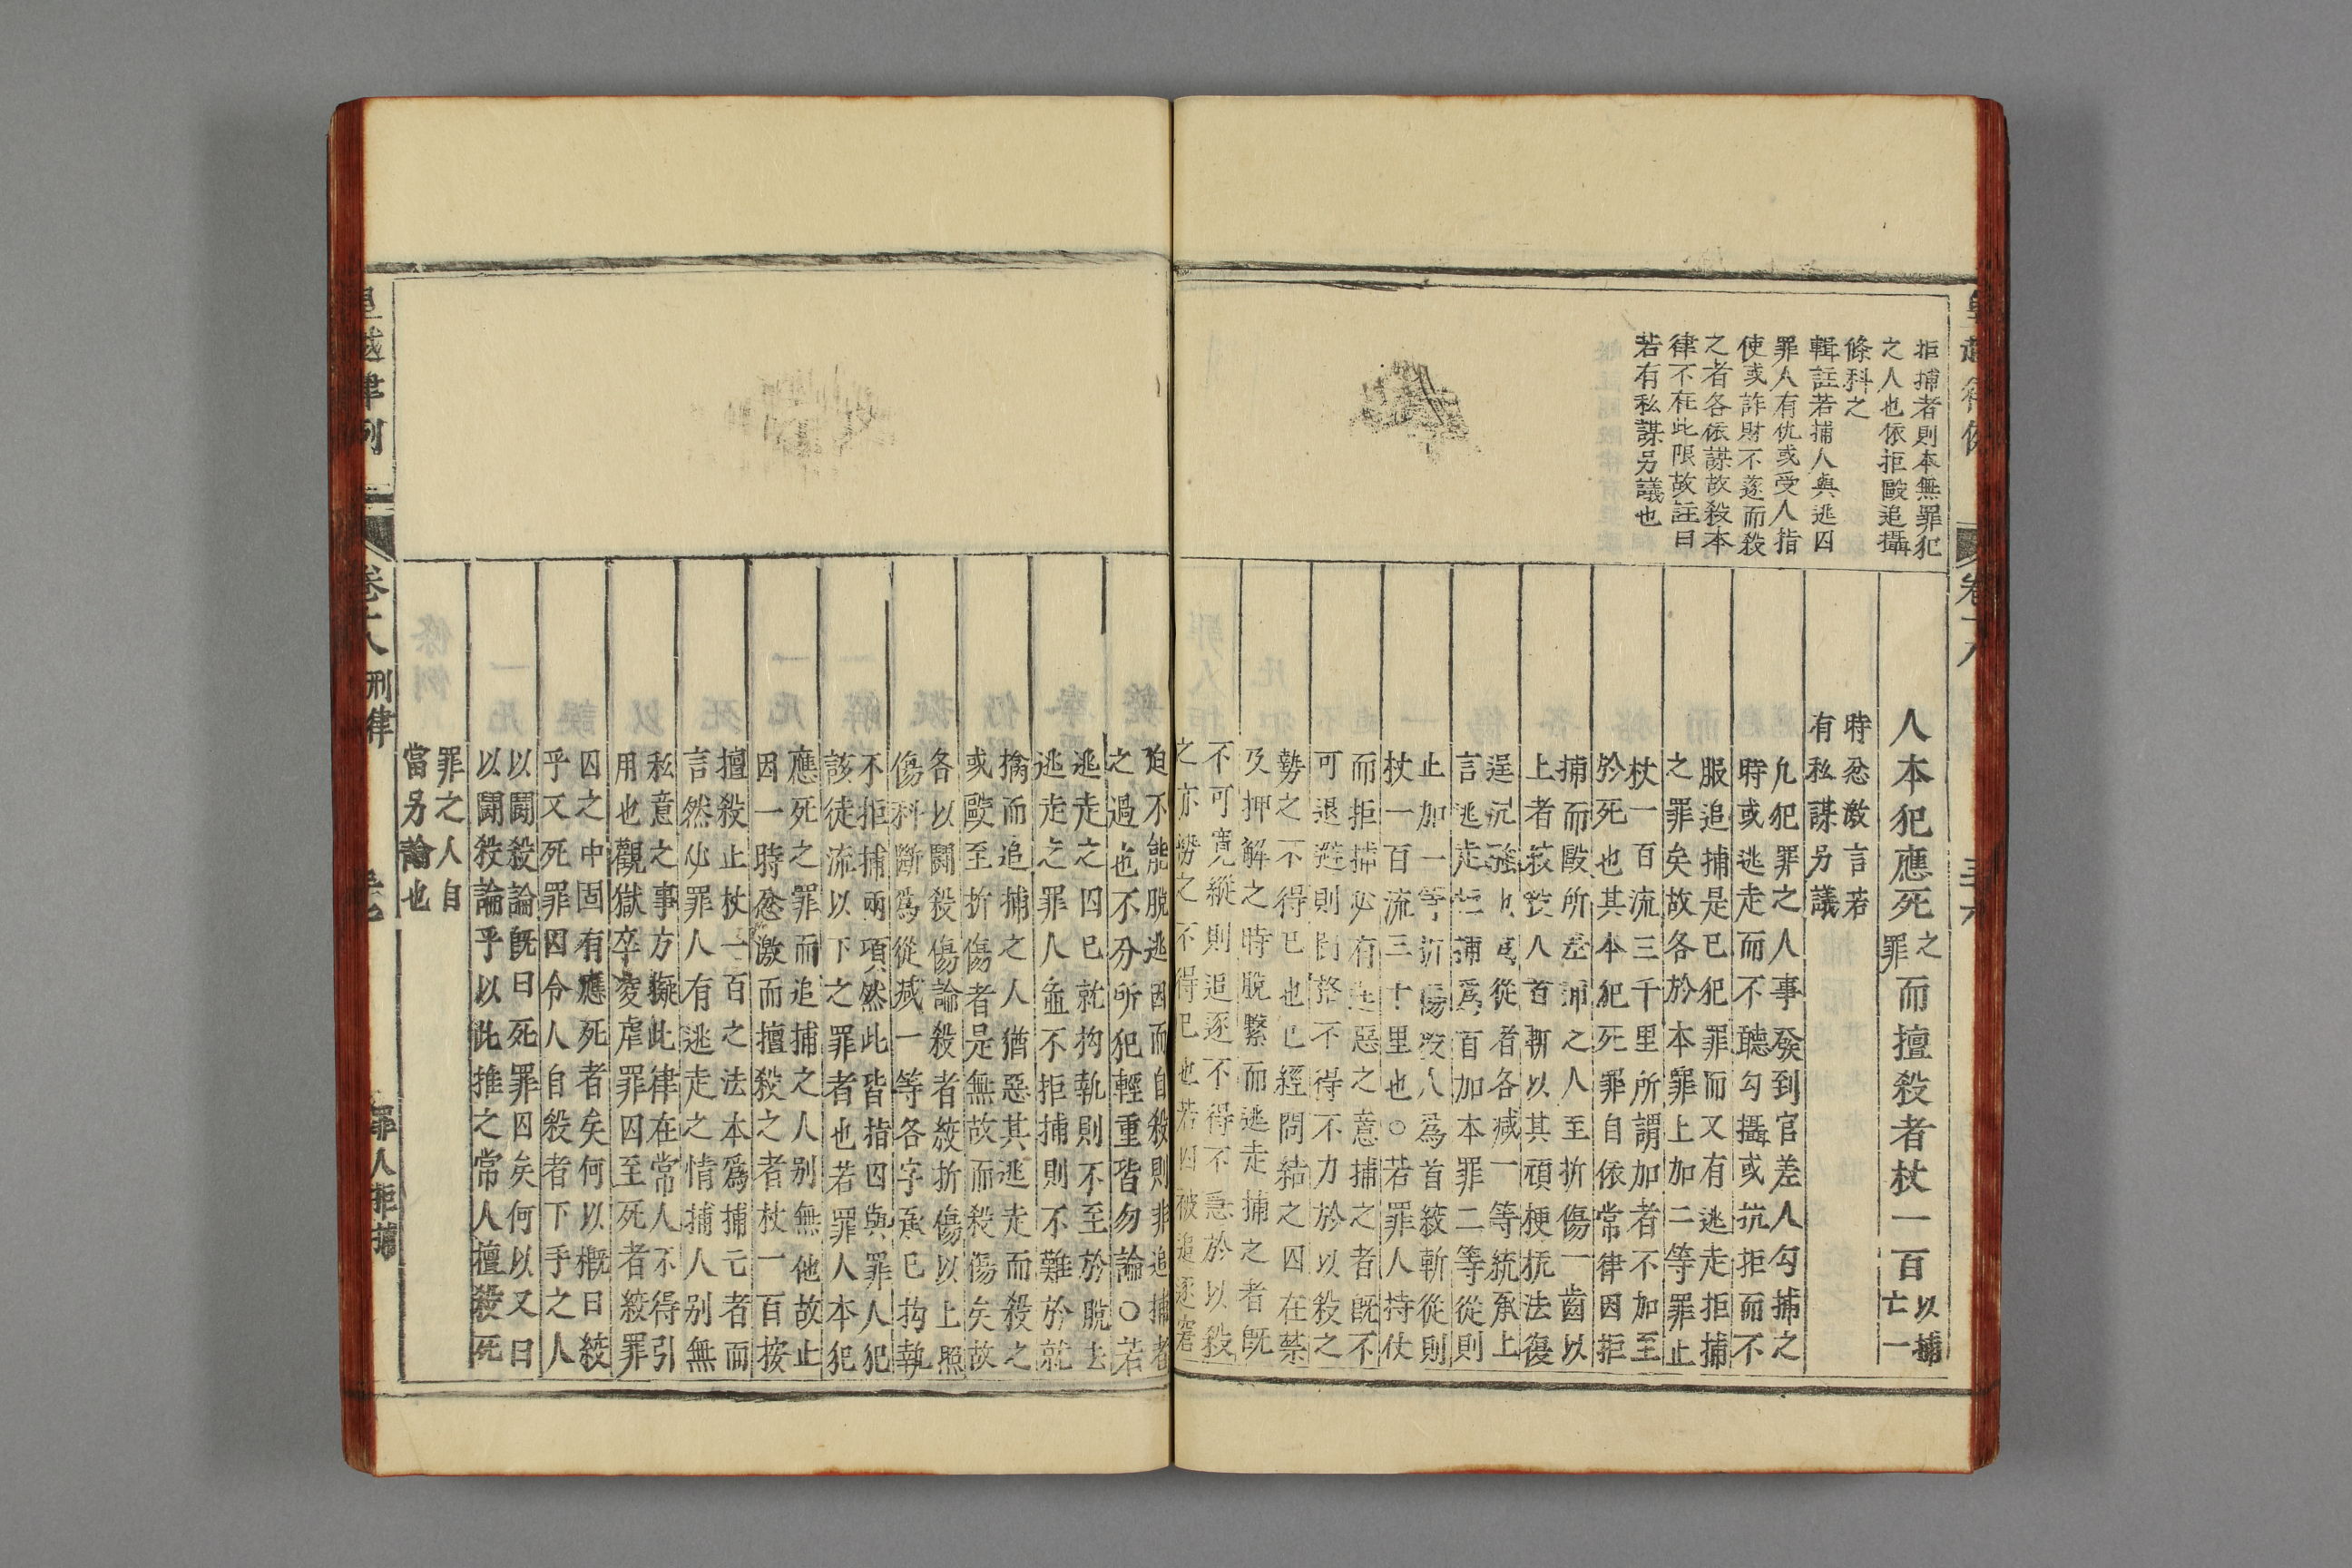 拒捕者則本無罪犯
之人也依拒毆追攝
條科之
輯註若捕人與逃囚
罪人有仇或受人指
使或詐財不遂而殺
之者各依謀故殺本
律不在此限故註曰
若有私謀另議也
人本犯應死之罪而擅殺者杖一百以捕亡一
時忿激言若
有私謀另議
凡犯罪之人事發到官差人勾捕之
時或逃走而不聽勾攝或抗拒而不
服追捕是已犯罪而又有逃走拒捕
之罪矣故各於本罪上加二等罪止
杖一百流三千里所謂加者不加至
於死也其本犯死罪自依常律因拒
捕而毆所差捕之人至折傷一齒以
上者絞殺人者斬以其頑梗抗法復
逞兇強也為從者各減一等統承上
言逃走拒捕為首加本罪二等從則
止加一等折傷殺人為首絞斬從則
杖一百流三千里也○若罪人持仗
而拒捕必有兇惡之意捕之者既不
可退避則格不得不力於以殺之
勢之不得已也已經問結之囚在禁
及押解之時脫繫而逃走捕之者既
不可寬縱則追逐不得不急於以殺
之亦勢之不得已也若囚被追逐窘
迫不能脫逃因而自殺則非追捕者
之過也不分所犯輕重皆勿論○若
逃走之囚已就拘執則不至於脫去
逃走之罪人並不拒捕則不難於就
擒而追捕之人猶惡其逃走而殺之
或毆至折傷者是無故而殺傷矣故
各以鬭殺傷論殺者絞折傷以上照
傷科斷為從減一等各字承已拘執
不拒捕兩項然此皆指囚與罪人犯
該徒流以下之罪者也若罪人本犯
應死之罪而追捕之人别無他故止
因一時忿激而擅殺之者杖一百按
擅殺止杖一百之法本為捕亡者而
言然必罪人有逃走之情捕人别無
私意之事方擬此律在常人不得引
用也觀獄卒凌虐罪囚至死者絞罪
囚之中固有應死者矣何以概曰絞
乎又死罪囚令人自殺者下手之人
以鬭殺論既曰死罪囚矣何以又曰
以鬭殺論乎以此推之常人擅殺死
罪之人自
當另論也
皇越律例 卷十八 刑律 罪人拒捕